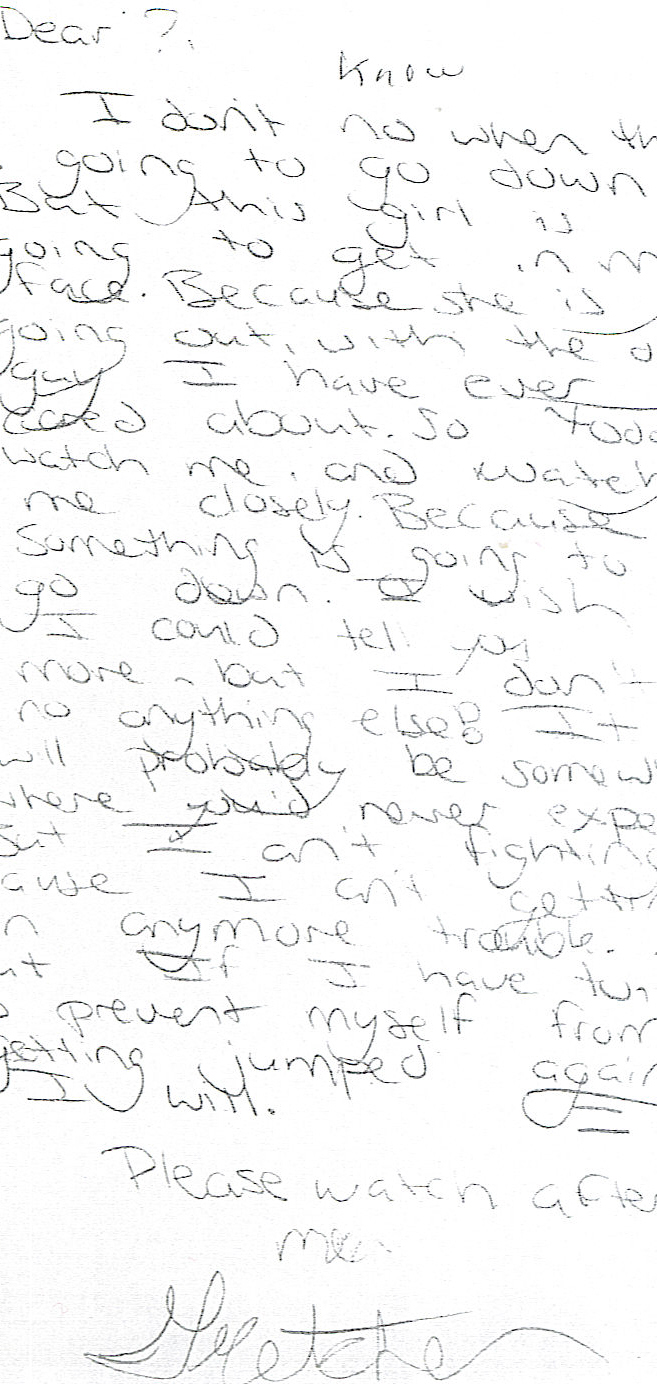 Dear ?.
Know
I don't no when th
going to go down
But this girl is
going to get in m
face. Because she is
going out, with the o
guy I have ever
cared about. So Toda
watch me, and watch
me closely. Because
Something is going to
go down. I wish
I could tell you
more, but I don't
no anything else!! It
will probably be somew
where you'd never expe
But I an't fighting
ause I an't getti
n anymore trouble.
ut If I have tw
o prevent myself from
getting jumped again
I will.
Please watch after
me.
Gretchen